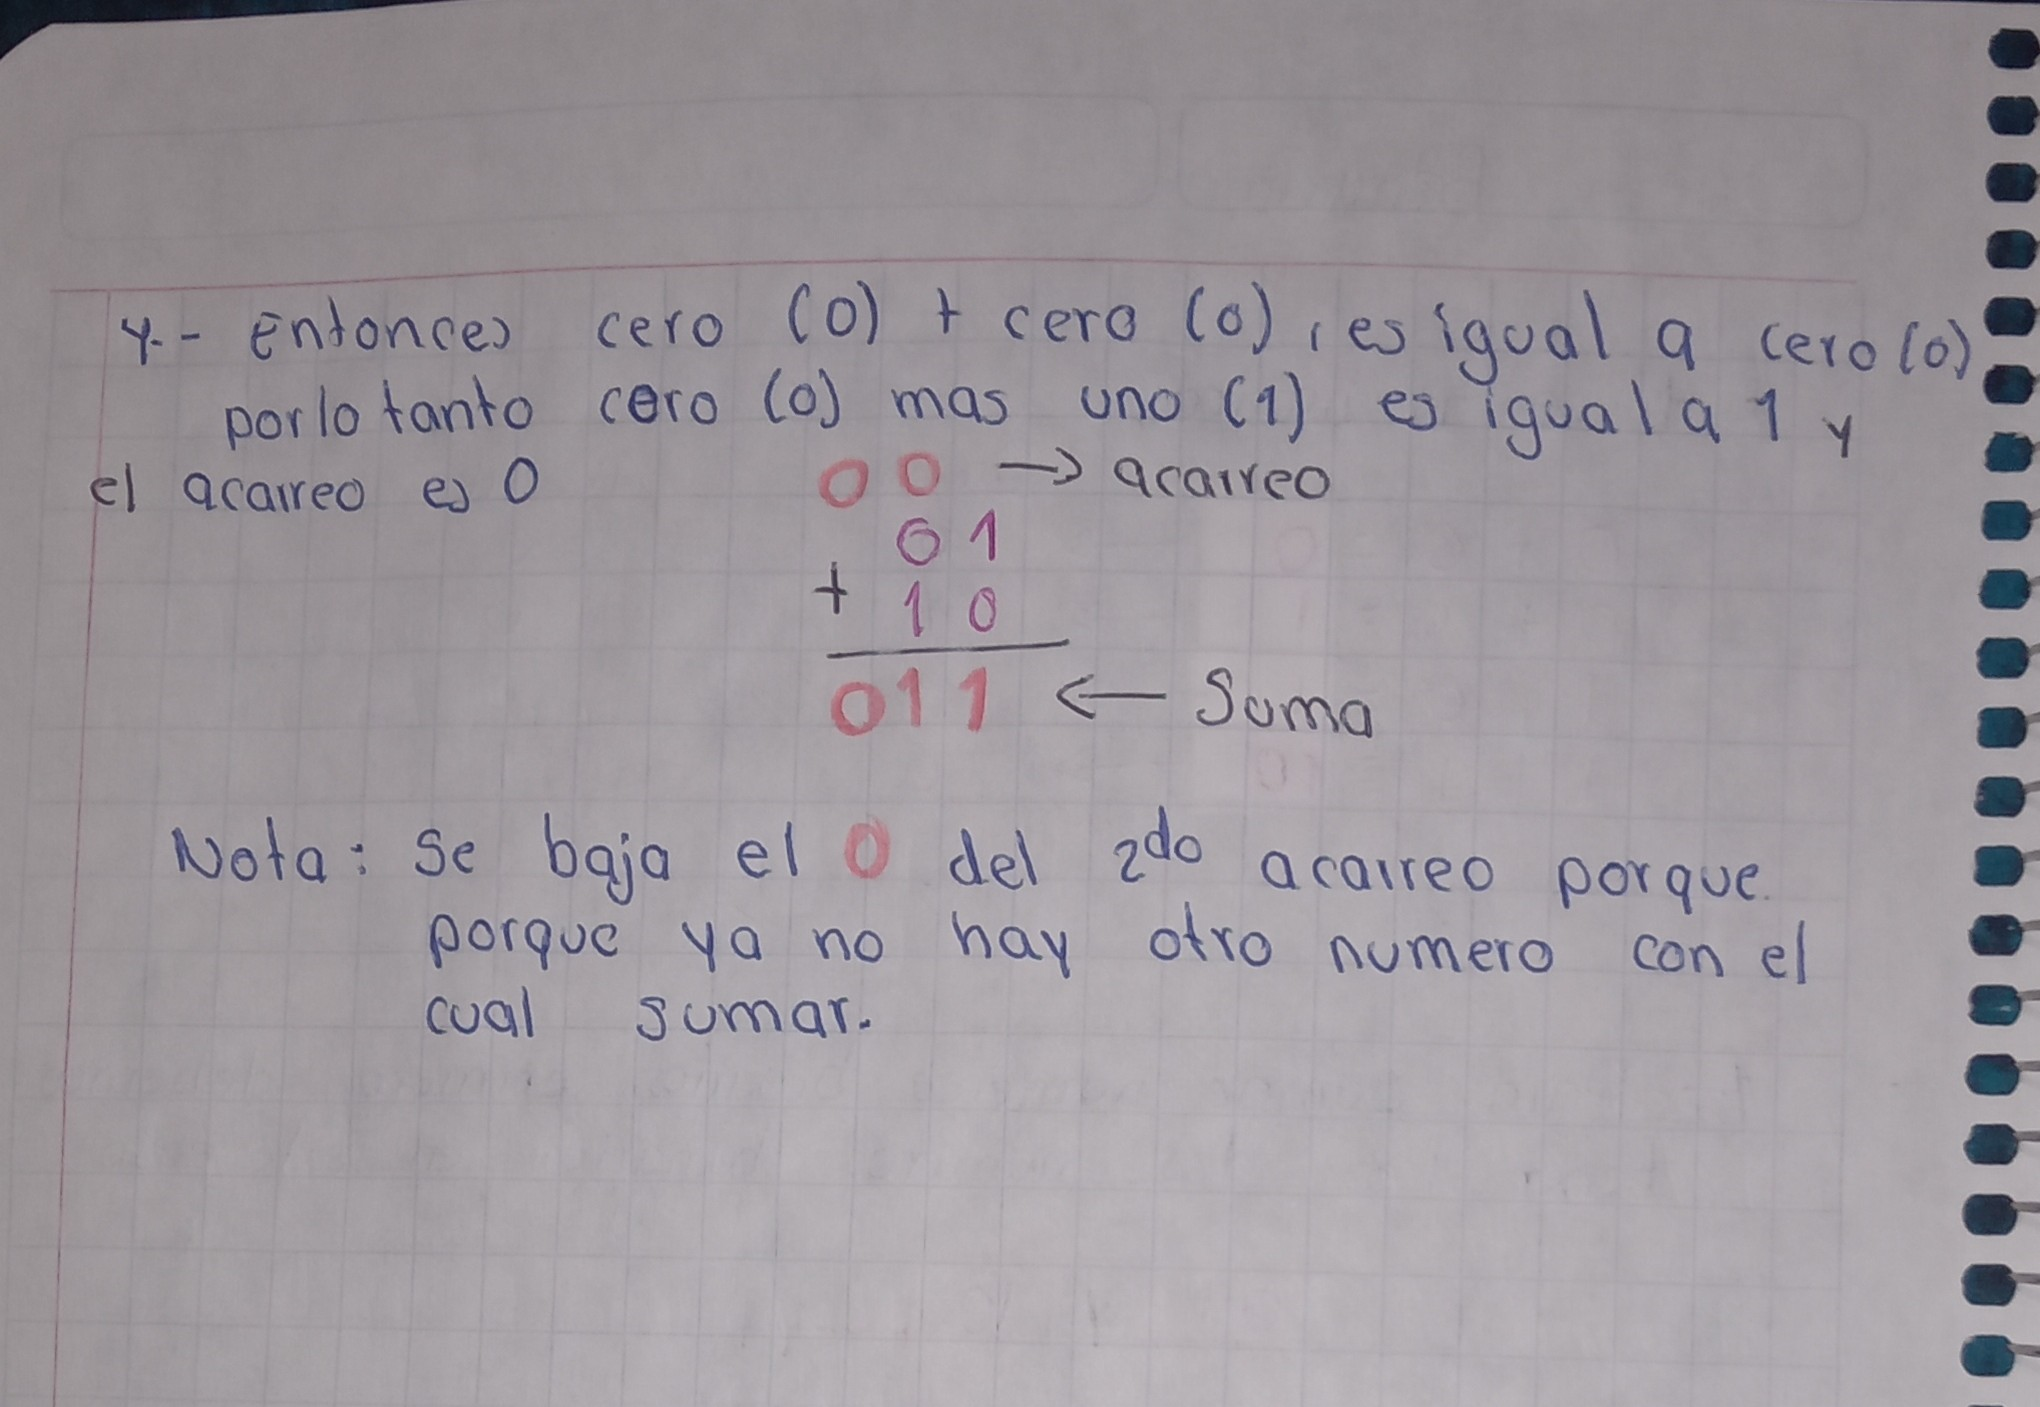 4.- Entonces cero (0) + cero (0), es igual a cero (0)
por lo tanto cero (0) mas uno (1) es igual a 1 y
el acarreo es 0
0 0 → acarreo
0 1
+ 1 0
0 1 1 ← Suma
Nota: Se baja el 0 del 2do acarreo porque
porque ya no hay otro numero con el
cual sumar.